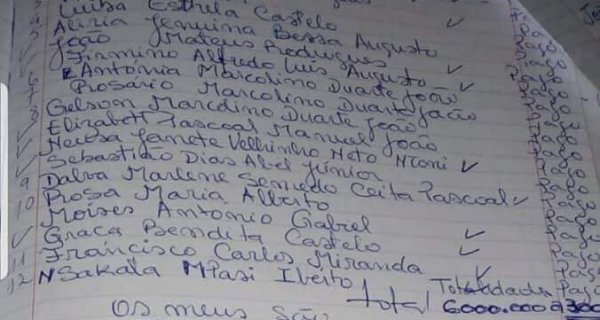 Luisa Estrela Castelo ✓
Aliria Jenuina Bessa Augusto
João Mateus Rodrigues ✓ Pago
Firmino Alfredo Luis Augusto ✓ Pago
Antónia Marcolino Duarte João ✓ Pago
Rosário Marcolino Duarte João Pago
Gelson Marcolino Duarte João Pago
Elizabett Pascoal Manuel João Pago
Neusa Janete Velhinho Neto Ntoni ✓ Pago
Sebastião Dias Abel Júnior Pago
9 Dalva Marlene Semedo Ceita Pascoal ✓ Pago
10 Rosa Maria Alberto Pago
Moises Antonio Gabriel ✓ Pago
✓ Graça Bendita Castelo ✓ Pago
11 Francisco Carlos Miranda ✓ Pago
12 NSakala MPasi Ibeito Pago
total 6000.00
Os meus são